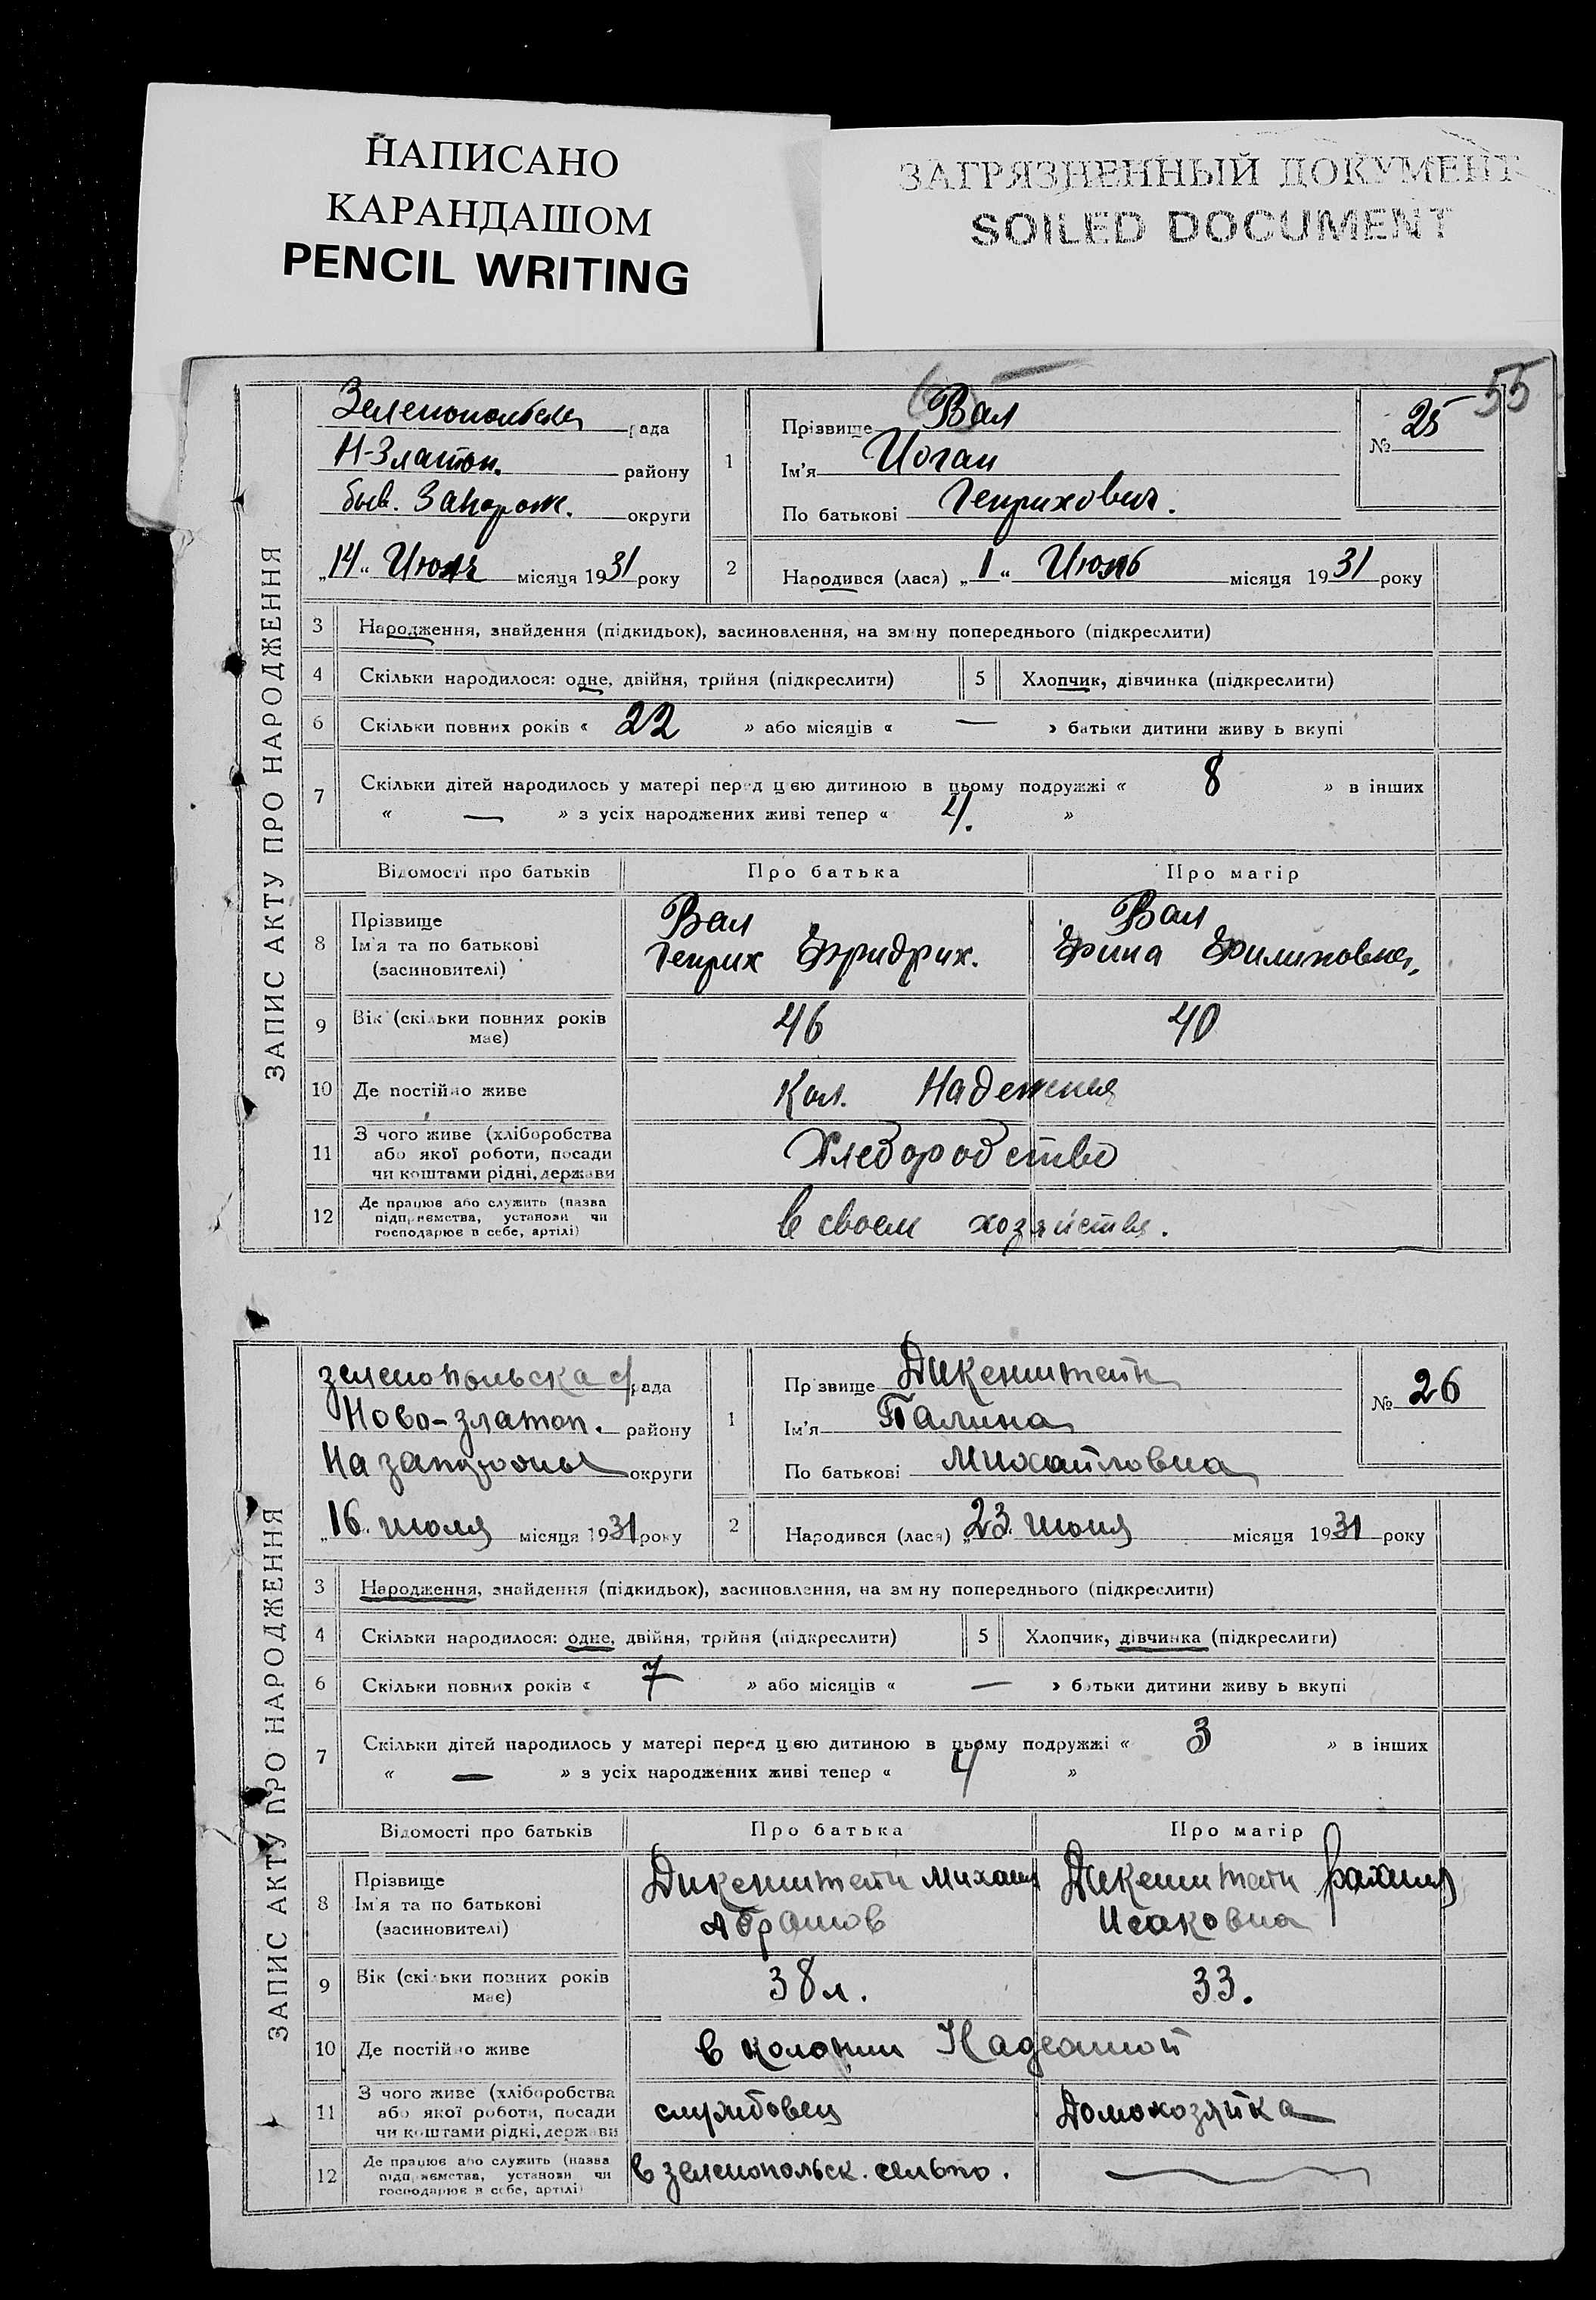 НАПИСАНО
КАРАНДАШОМ
PENCIL WRITING
ЗАГРЯЗНЕННЫЙ ДОКУМЕНТ
SOILED DOCUMENT
55
ЗАПИС АКТУ ПРО НАРОДЖЕННЯ
рада
Н-Златоп. району
быв. Запорож. округи
„14“ Июля місяця 1931 року
1
Прізвище Вал
Ім'я Иоган
По батькові Генрихович.
№ 25
2
Народився (лася) „1“ Июль місяця 1931 року
3 Народження, знайдення (підкидьок), засиновлення, на зміну попереднього (підкреслити)
4 Скільки народилося: одне, двійня, трійня (підкреслити)
5 Хлопчик, дівчинка (підкреслити)
6 Скільки повних років « 22 » або місяців « — » батьки дитини живуть вкупі
7 Скільки дітей народилось у матері перед цією дитиною в цьому подружжі « 8 » в інших
« — » з усіх народжених живі тепер « 4. »
Відомості про батьків Про батька Про матір
8 Прізвище
Ім'я та по батькові
(засиновителі)
Вал
Генрих Фридрих.
Вал
Филиповна
9 Вік (скільки повних років
має)
46 40
10 Де постійно живе Кол. Надежная
11 З чого живе (хліборобства
або якої роботи, посади
чи коштами рідні, держави
Хлебородство
12 Де працює або служить (назва
підприємства, установи чи
господарює в себе, артілі)
в своем хозяйстве.
ЗАПИС АКТУ ПРО НАРОДЖЕННЯ
зеленопольска с/рада
Ново-златоп. району
округи
„16. июля місяця 1931 року
1
Прізвище Дикенштейн
Ім'я Галина
По батькові Михайловна
№ 26
2
Народився (лася) „23. июня місяця 1931 року
3 Народження, знайдення (підкидьок), засиновлення, на зміну попереднього (підкреслити)
4 Скільки народилося: одне, двійня, трійня (підкреслити)
5 Хлопчик, дівчинка (підкреслити)
6 Скільки повних років « 7 » або місяців « — » батьки дитини живуть вкупі
7 Скільки дітей народилось у матері перед цією дитиною в цьому подружжі « 3 » в інших
« — » з усіх народжених живі тепер « 4 »
Відомості про батьків Про батька Про матір
8 Прізвище
Ім'я та по батькові
(засиновителі)
Дикенштейн Михаил
Абрамов
Дикенштейн Рахиль
Исаковна
9 Вік (скільки повних років
має)
38 л. 33.
10 Де постійно живе в колонии
11 З чого живе (хліборобства
або якої роботи, посади
чи коштами рідні, держави
служbовец Домохозяйка
12 Де працює або служить (назва
підприємства, установи чи
господарює в себе, артілі)
в зеленопольск. сельпо.